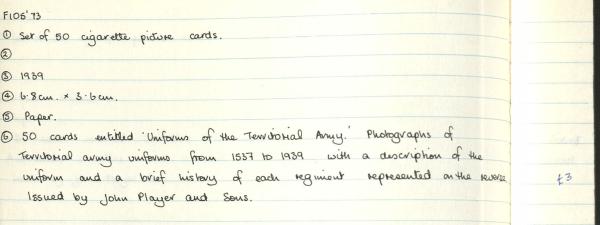 F105'73
① Set of 50 cigarette picture cards.
②
③ 1939
④ 6·8cm. × 3·6cm.
⑤ Paper.
⑥ 50 cards entitled 'Uniforms of the Territorial Army.' Photographs of
Territorial army uniforms from 1537 to 1939 with a description of the
uniform and a brief history of each regiment represented on the reverse
Issued by John Player and Sons.
£3